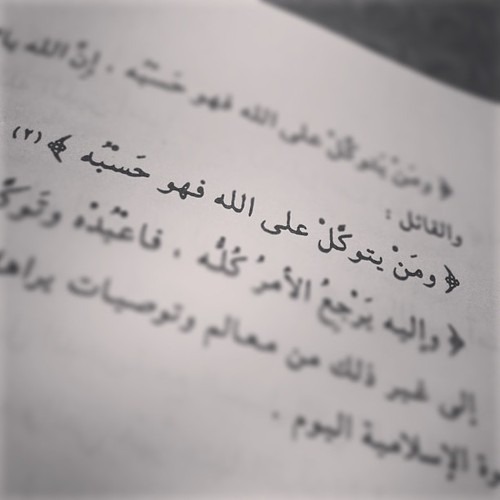 ﴿ ومَنْ يتوكَّلْ على الله فهو حَسْبُه . إنّ الله
والقائل :
﴿ ومَنْ يتوكَّلْ على الله فهو حَسْبُه ﴾ (٢)
﴿ وإليه يَرْجِعُ الأمرُ كُلُّه ، فاعْبُدْهُ
إلى غير ذلك من معالم وتوصيات يراها
الإسلامية اليوم .